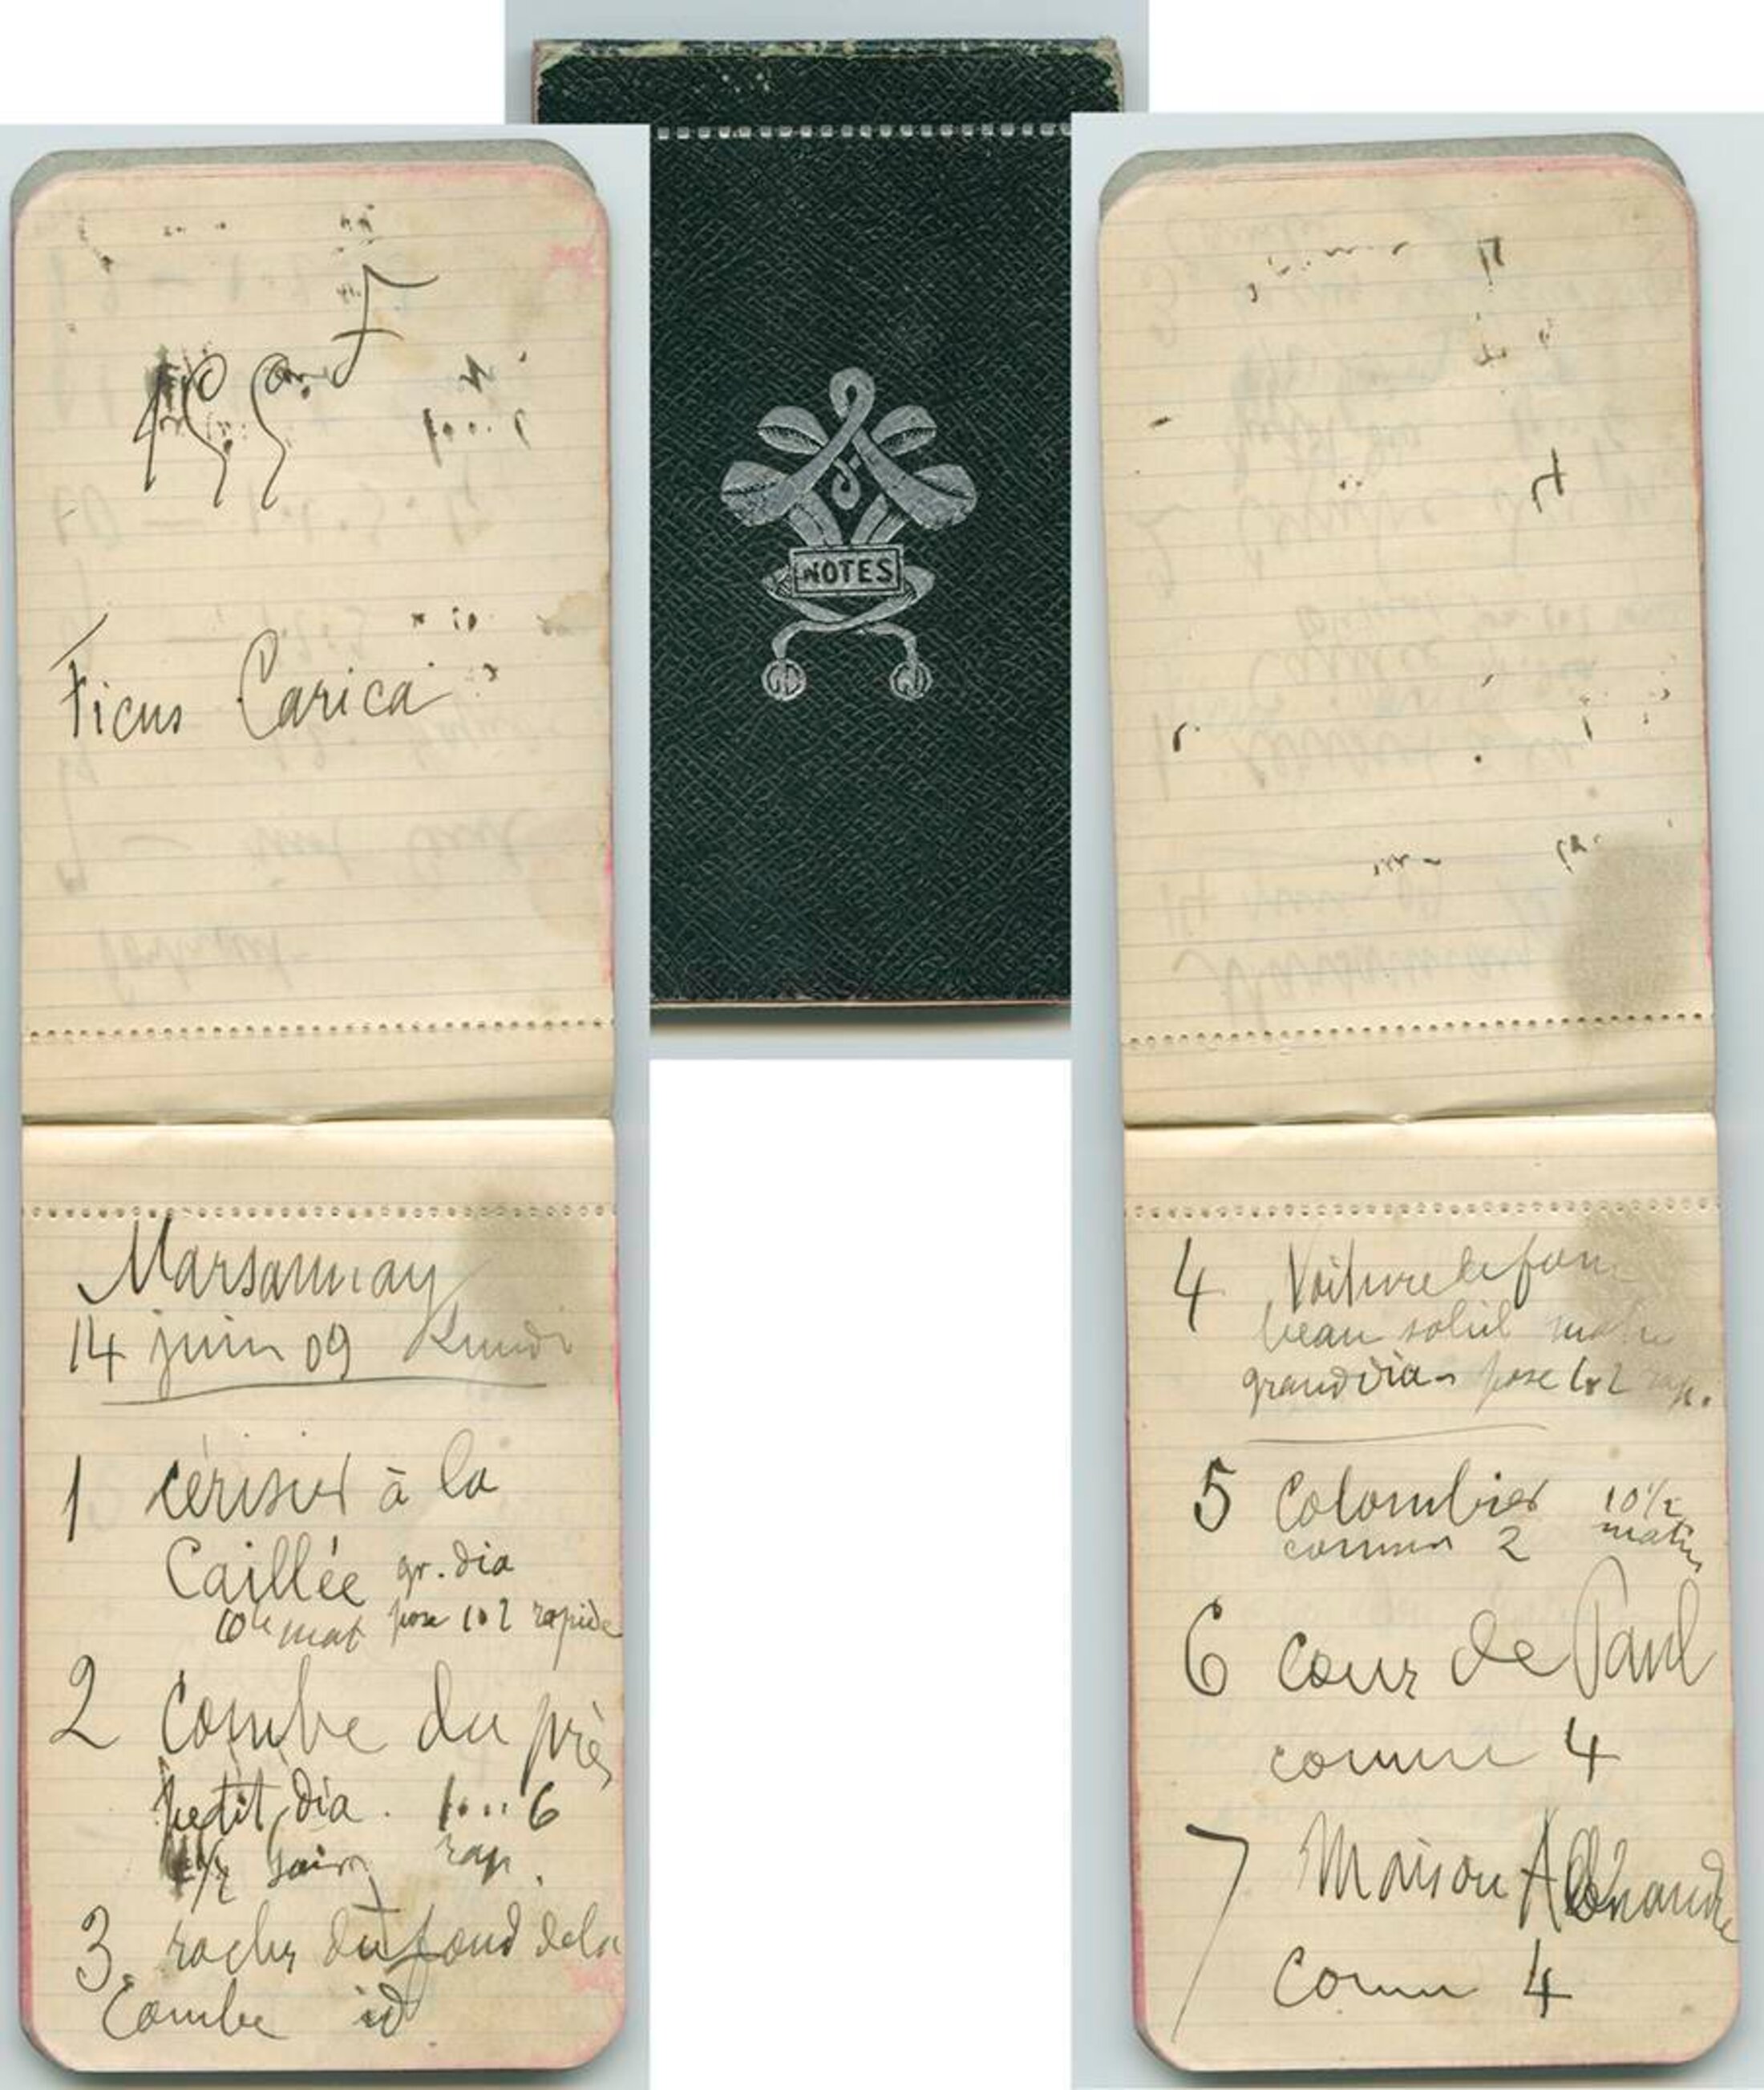 NOTES
Ficus Carica
Marsannay
14 juin 09 Lundi
1 cérisier à la
Caillée gr. dia
10h mat pose 102 rapide
2 Combe du près
petit dia. 6
1/2 soir rap.
3. roches du fond de la
Combe id
4 Voiture
beau soleil matin
grand dia pose rap.
5 Colombier 10 1/2
comme 2 matin
6 Cour de Paul
comme 4
7 Maison Alexandre
Comme 4